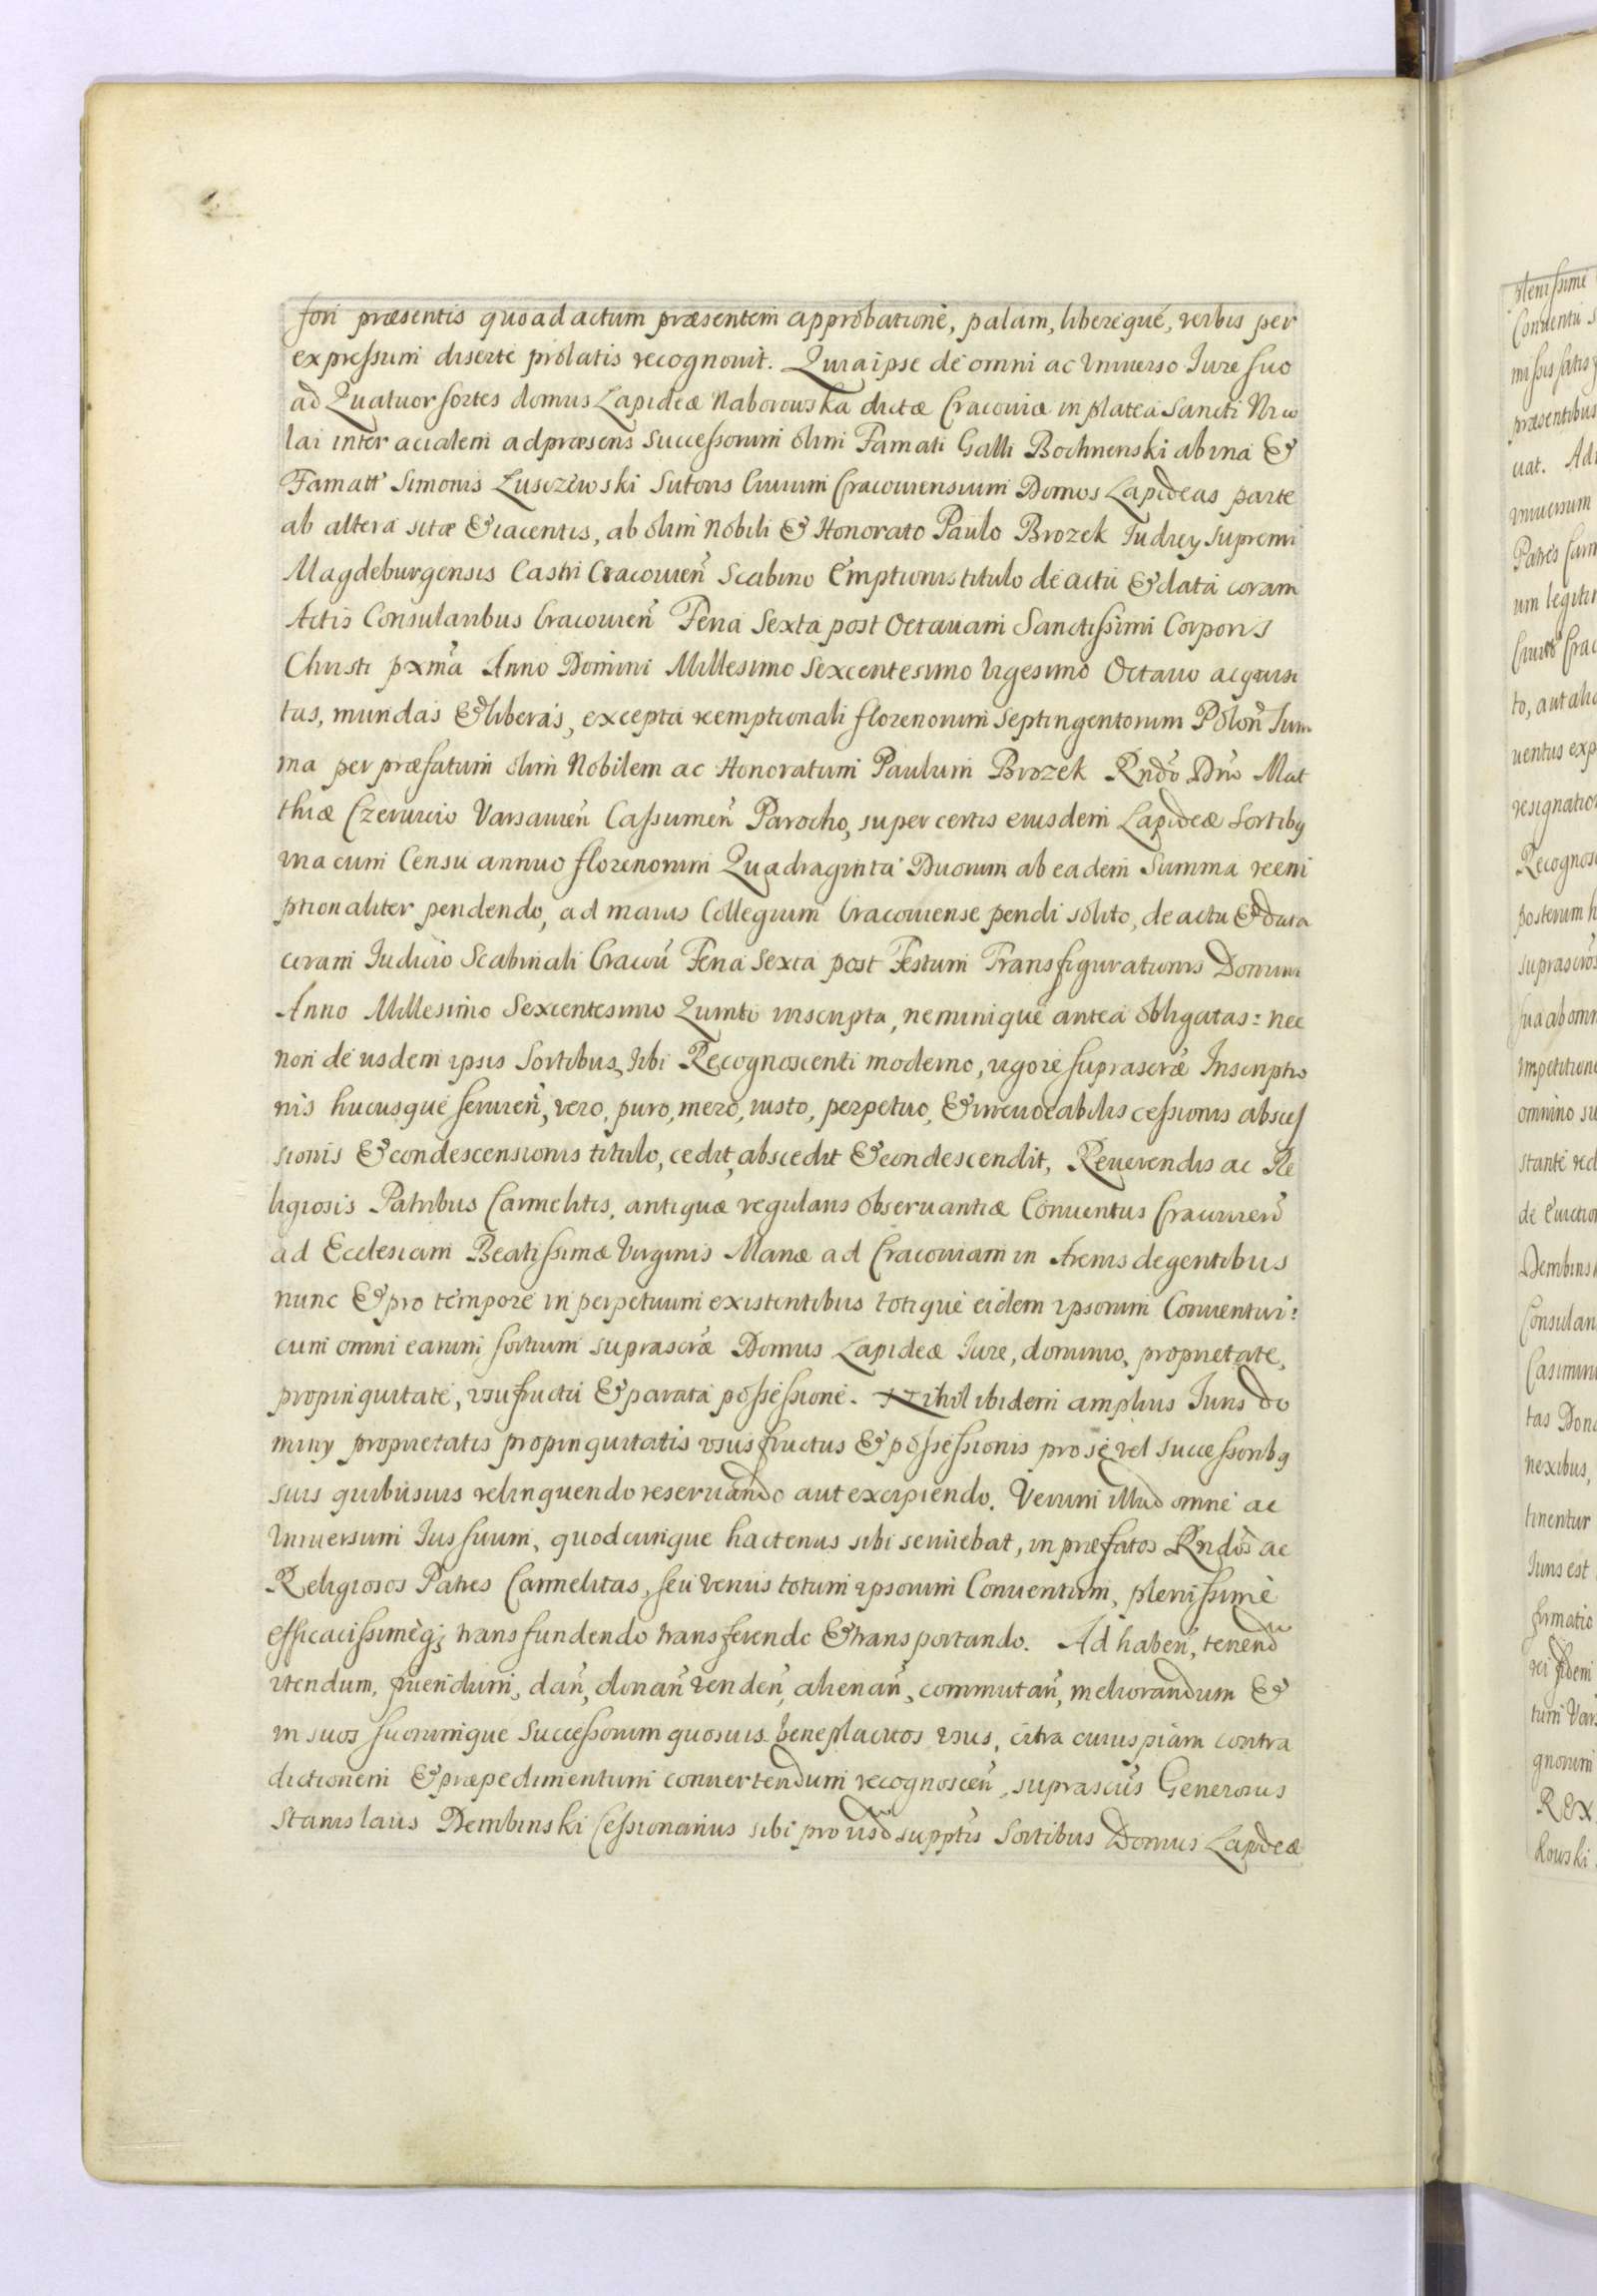 fori præsentis quoad actum præsentem approbatione, palam, libereque, verbis per
expressum diserte prolatis recognovit. Quia ipse de omni ac Vniuerso Iure suo
ad Quatuor sortes domus Lapideæ Naborowska dictæ Cracouiæ in platea Sancti Nico
lai inter acialem ad præsens Successorum olim Famati Galli Bochnenski ab vna &
Famati Simonis Zusczewski Sutoris Ciuium Cracouiensium Domos Lapideas parte
ab altera sitæ & iacentis, ab olim Nobili & Honorato Paulo Brozek Iudicy Supremi
Magdeburgensis Castri Cracouień Scabino Emptionis titulo de actu & data coram
Actis Consularibus Cracouień Feria Sexta post Octauam Sanctissimi Corporis
Christi pxma Anno Domini Millesimo Sexcentesimo Vigesimo Octauo acquisi
tas, mundas & liberas, excepta reemptionali florenorum Septingentorum Polon Sum
ma per præfatum olim Nobilem ac Honoratum Paulum Brozek Rndo Dno Mat
thiæ Czerwicio Varsauień Cassumeń Parocho, super certis eiusdem Lapideæ Sortibq
vna cum Censu annuo florenorum Quadraginta Duorum ab eadem Summa reem
ptionaliter pendendo, ad maius Collegium Cracouiense pendi solito, de actu & data
coram Iudicio Scabinali Cracoú Feria Sexta post Festum Transfigurationis Domini
Anno Millesimo Sexcentesimo Quinto inscripta, neminique antea obligatas: nec
non de iisdem ipsis Sortibus, sibi Recognoscenti moderno, vigore suprascræ Inscriptio
nis hucusque seruień, vero, puro, mero, iusto, perpetuo, & irreuocabilis cessionis absces
sionis & condescensionis titulo, cedit, abscedit & condescendit, Reuerendis ac Re
ligiosis Patribus Carmelitis, antiquæ regularis obseruantiæ Conuentus Cracouień
ad Ecclesiam Beatissimæ Virginis Mariæ ad Cracouiam in Arenis degentibus
nunc & pro tempore in perpetuum existentibus totique eidem ipsorum Conuentui:
cum omni earum sortium suprascræ Domus Lapideæ Iure, dominio, proprietate,
propinquitate, vsufructu & parata possessione. Nihil ibidem amplius Iuris do
miny proprietatis propinquitatis vsusfructus & possessionis pro se vel successoribq
suis quibusuis relinquendo reseruando aut excipiendo. Verum illud omne ac
Vniuersum Ius suum, quodcunque hactenus sibi seruiebat, in præfatos Rndos ac
Religiosos Patres Carmelitas, seu verius totum ipsorum Conuentum, plenissime
efficacissimeq; transfundendo transferendo & transportando. Ad habeń, tenend
vtendum, fruendum, dań, donań vendeń, alienań, commutań, meliorandum &
in suos suorumque Successorum quosuis beneplacitos vsus, citra cuiuspiam contra
dictionem & præpedimentum conuertendum recognosceń, suprascrus Generosus
Stanislaus Dembinski Cessionarius sibi pro iisd supptis Sortibus Domus Lapideæ